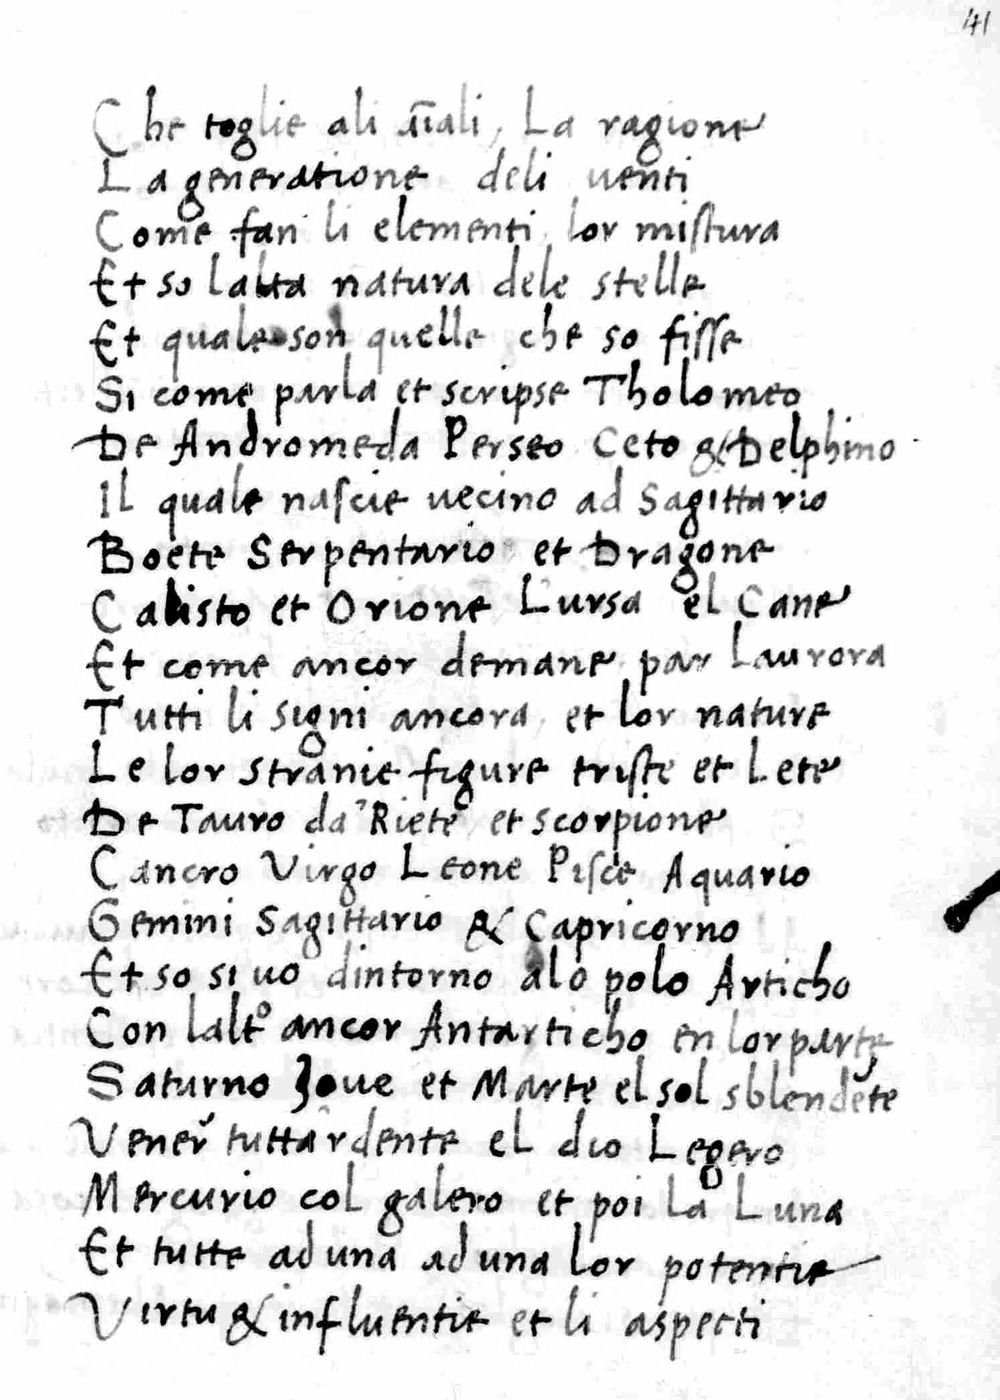 41
Che toglie ali aĩali, La ragione
La generatione deli uenti
Come fan li elementi lor miſtura
Et so lalta natura dele stelle
Et quale son quelle che so fiſſe
Si come parla et scripse Tholomeo
De Andromeda Perseo Ceto & Delphino
Il quale naſcie uecino ad Sagittario
Boete Serpentario et Dragone
Calisto et Orione Lursa el Cane
Et come ancor demane par Laurora
Tutti li signi ancora, et lor nature
Le lor stranie figure triſte et Lete
De Tauro da'Riete et scorpione
Cancro Virgo Leone Piſce Aquario
Gemini Sagittario & Capricorno
Et so si uo dintorno alo polo Articho
Con laltº ancor Antarticho en lor parte
Saturno Joue et Marte el sol sblendẽte
Vener̃ tuttardente el dio Legero
Mercurio col galero et poi La Luna
Et tutte ad una ad una lor potentie
Virtu & influentie et li aspecti